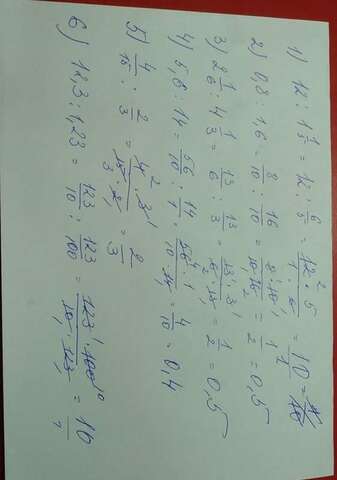 1) 12 : 1 1/5 = 12 : 6/5 = 12² · 5 / 1 · 6 = 10/1 =
2) 0,8 : 1,6 = 8/10 : 16/10 = 8 · 10 / 10 · 16 = 1/2 = 0,5
3) 2 1/6 : 4 1/3 = 13/6 : 13/3 = 13 · 3 / 6 · 13 = 1/2 = 0,5
4) 5,6 : 14 = 56/10 : 14/1 = 56 · 1 / 10 · 14 = 4/10 = 0,4
5) 4/15 : 2/3 = 4² · 3¹ / 15 · 2 = 2/3
6) 12,3 : 1,23 = 123/10 : 123/100 = 123¹ · 100¹⁰ / 10 · 123 = 10/1